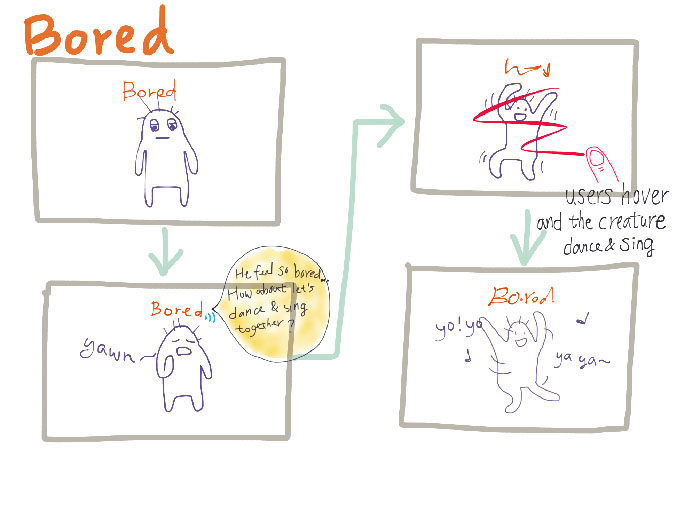 Bored
Bored
Bored
yawn~
He feel so bored..
How about let's
dance & sing
together?
users hover
and the creature
dance & sing
Bored
yo! yo
ya ya~